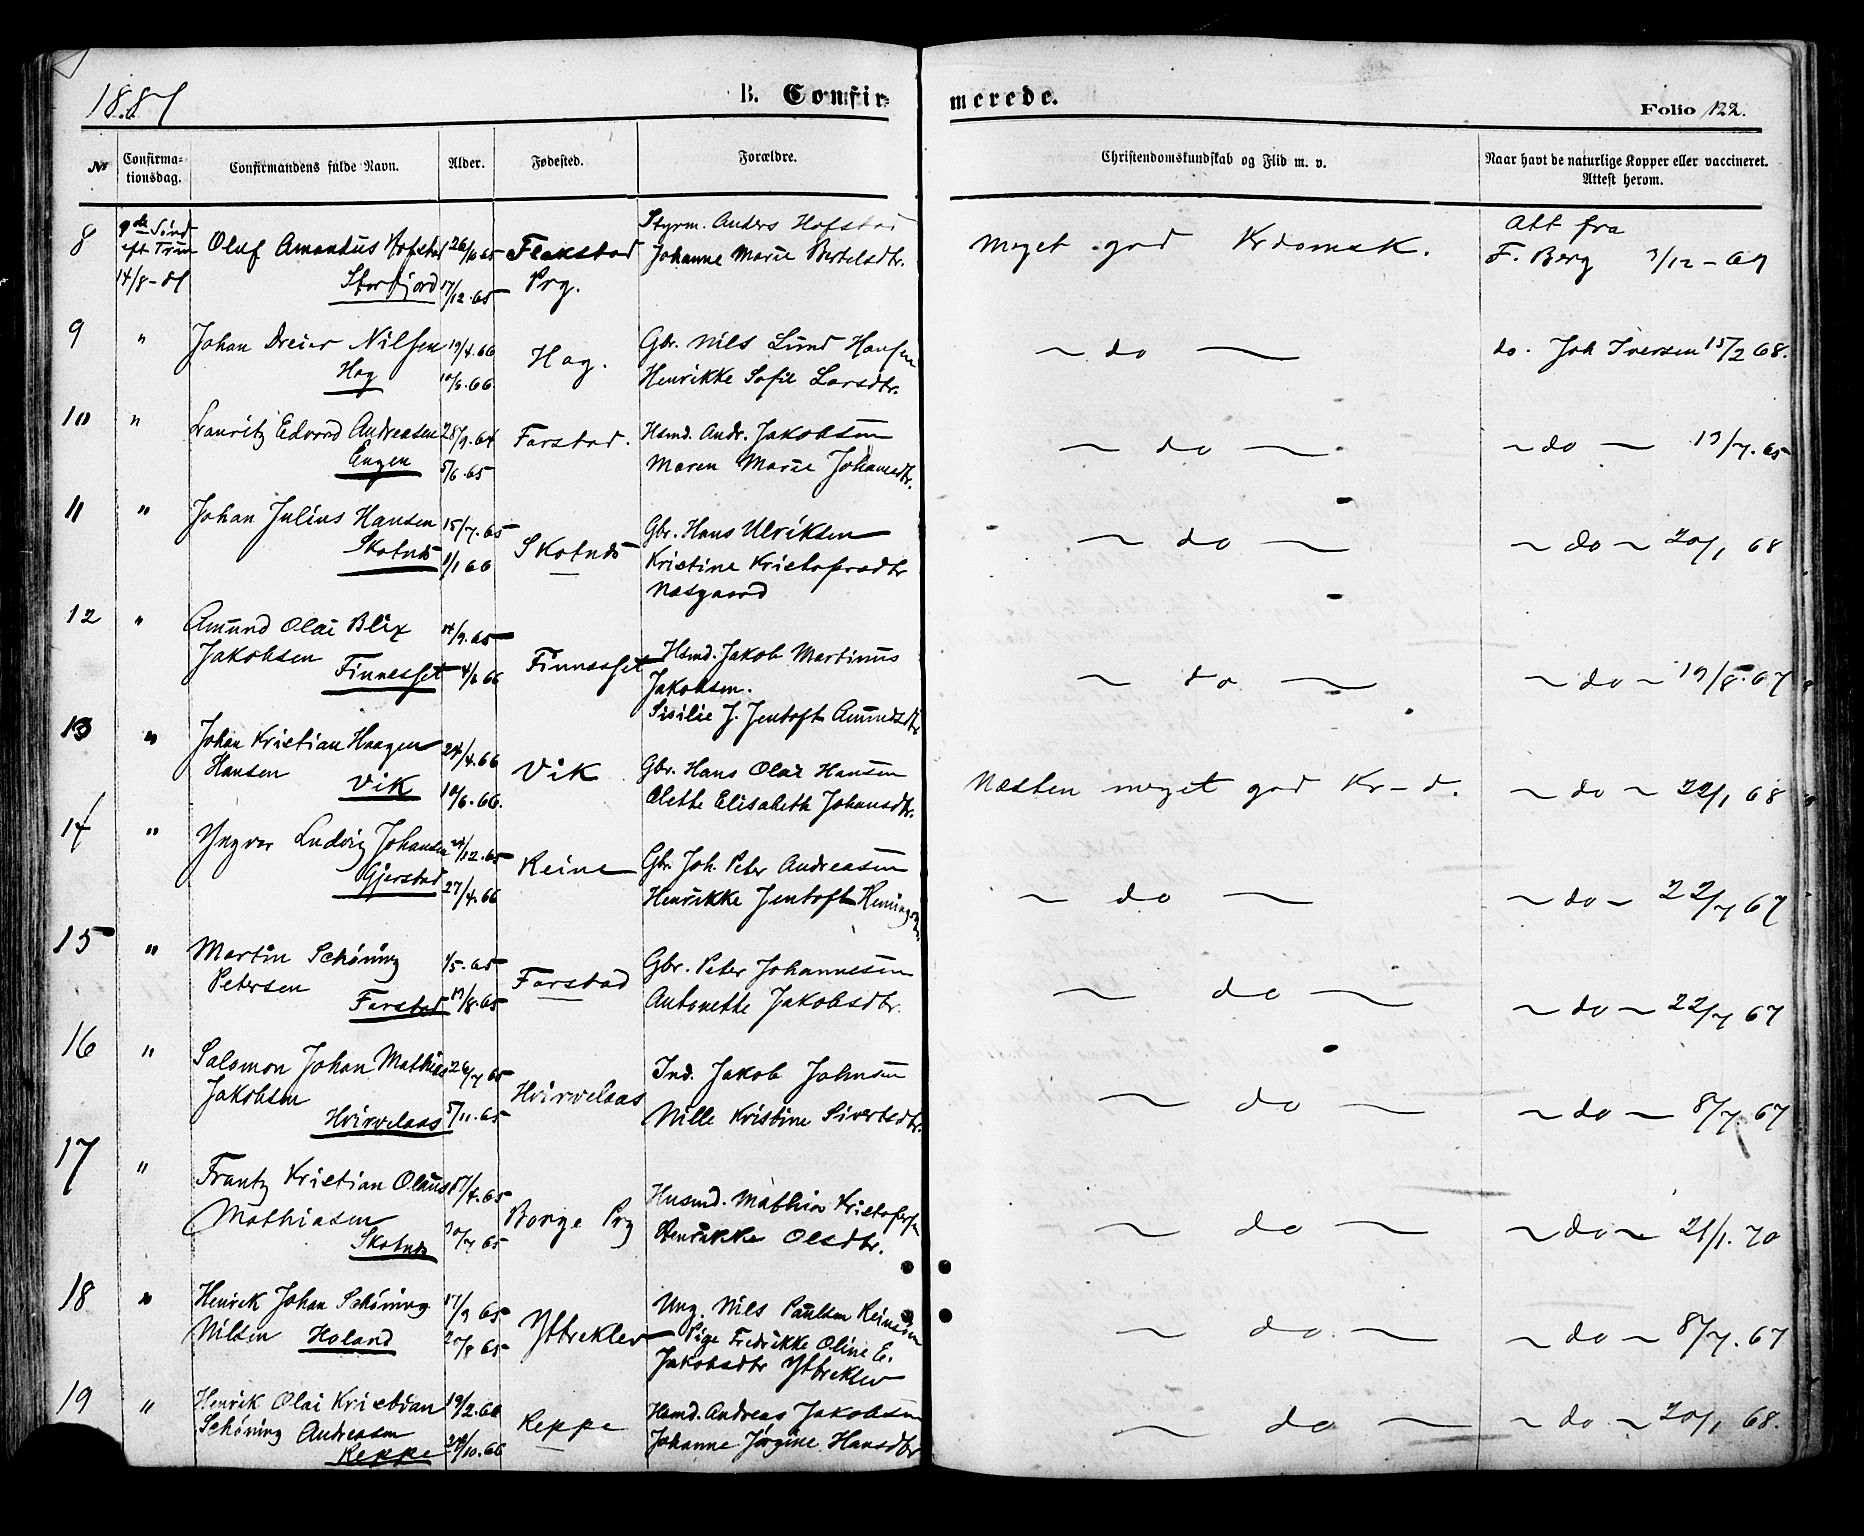 1881 B. Confirmerede. Folio 122.
No Confirmationsdag. Confirmandens fulde Navn. Alder. Fødested. Forældre. Christendomskundskab og Flid m. v. Naar havt de naturlige Kopper eller vaccineret. Attest herom.
8 9de Sönd Oluf Amandus Hofstad Flakstad Styrm. Anders Hofstad Meget god Krdomsk. Att fra
eft Trin Johanne Marie Bertelsdtr. F. Berg
14/8-81 Storfjord 17/12.65 Prg.
9 " Johan Dreier Nilsen 19/4.66 Hag. Gbr. Nils Lund Hansen ~ do ~ do. Joh Iversen 15/2 68.
Hag 10/6.66 Henrikke Sofie Larsdtr.
10 " Lauritz Edvard Andreasen 28/9.64 Farstad. Hsmd. Andr. Jakobsen ~ do ~ ~ do ~ 19/7.65
Engen 5/6.65 Maren Marie Johansdtr.
11 " Johan Julius Hansen 15/7.65 Skotnæs Gbr. Hans Ulriksen ~ do ~ ~ do ~ 20/1 68
Skotnæs 1/1 66 Kristine Kristofersdtr
Næsgaard
12 " Amund Olai Blix 14/9.65 Finnesset Hsmd. Jakob Martinus ~ do ~ ~ do ~ 19/8.67
Jakobsen Finnesset 4/6 66 Jakobsen.
Sisilie J. Jentoft Amundsdtr
13 " Johan Kristian Haagen 24/4.66 Vik Gbr. Hans Olai Hansen Næsten meget god Kr-d. ~ do ~ 22/1 68
Hansen Vik 10/6.66. Olette Elisabeth Johansdtr.
14 " Yngvar Ludvig Johansen Reine Gbr. Joh. Peter Andreasen ~ do ~ ~ do ~ 22/7 67
Gjerstad 27/4.66 Henrikke Jentoft
15 " Martin Schöning 1/5.65 Farstad Gbr. Peter Johannesen ~ do ~ ~ do ~ 22/7 67
Petersen Farstad Antonette Jakobsdtr.
16 " Salomon Johan Mathias 26/7 65 Hvirvelaas Ind. Jakob Johnsen ~ do ~ ~ do ~ 8/7.67
Jakobsen Hvirvelaas 5/11.65 Nille Kristine Sivertsdtr.
17 " Frantz Kristian Olaus 17/4.65 Borge Prg Husmd. Mathias Kristofersen ~ do ~ ~ do ~ 21/1.70
Mathiasen Skotnæs 30/7 65 Henrikke Olsdtr.
18 " Henrik Johan Schöning Ytreklev Ung. Nils Paulsen Reinsen ~ do ~ ~ do ~ 8/7.67
Nilsen Holand 20/8 65 Pige Fredrikke Oline E.
Jakobsdtr Ytreklev
19 " Henrik Olai Kristian Reppe Hsmd. Andreas Jakobsen ~ do ~ ~ do ~ 20/1 68.
Schöning Andreasen Reppe Johanne Jörgine Hansdtr